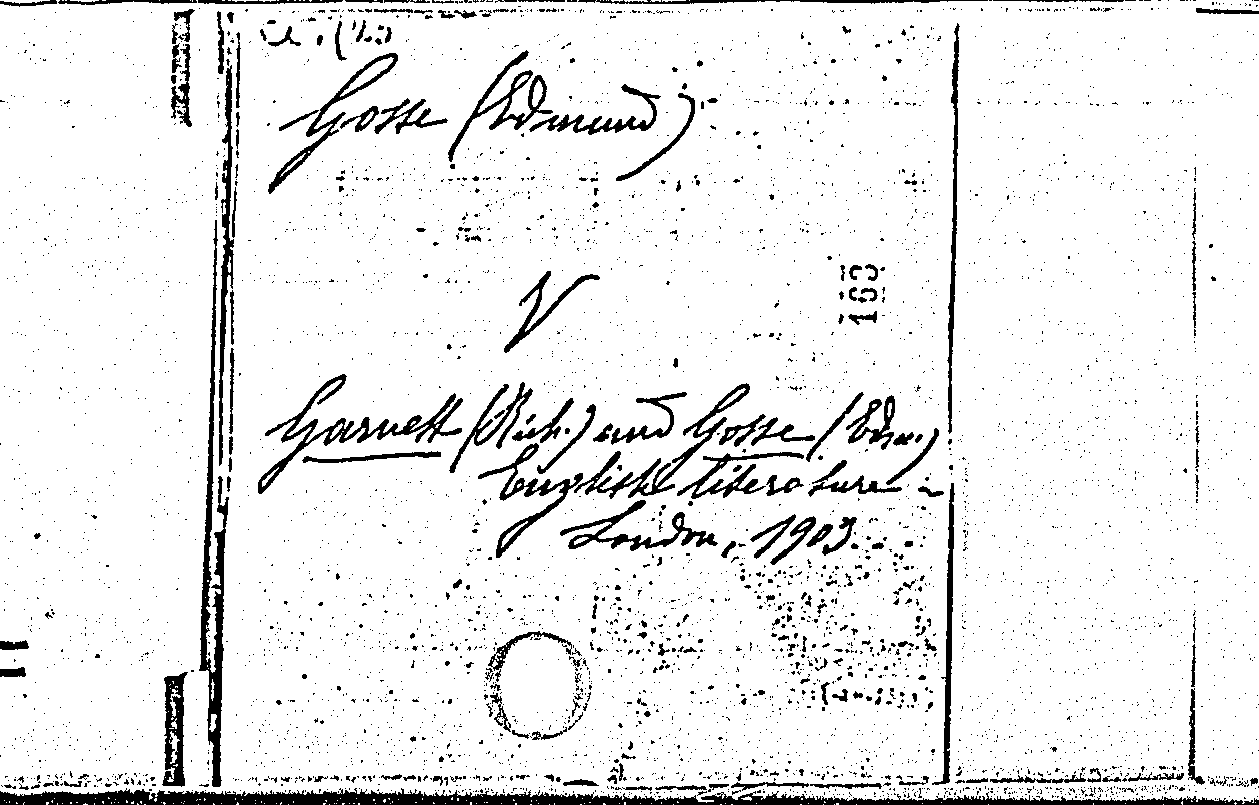 Gosse (Edmund)
V
163
Garnett (Rich.) and Gosse (Edm.)
English literature -
London, 1903.